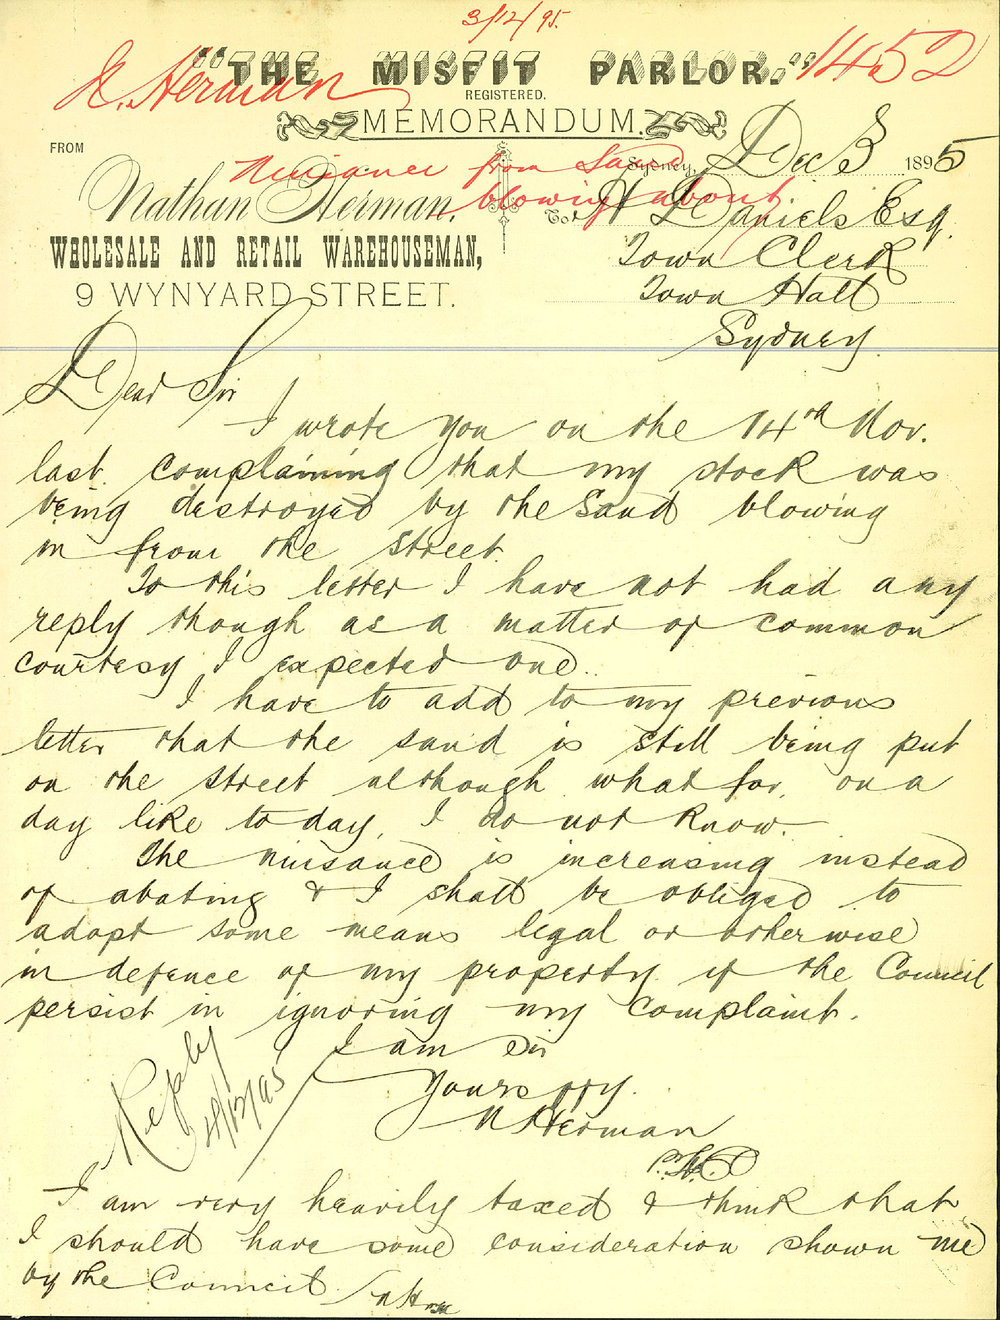 3/12/95.
"THE MISFIT PARLOR."
N. Herman
1452
REGISTERED.
MEMORANDUM.
FROM
Sydney, Dec 3 1895
Nuisance from Sand
blowing about
Nathan Herman,
To H Daniels Esq.
WHOLESALE AND RETAIL WAREHOUSEMAN,
Town Clerk
9 WYNYARD STREET.
Town Hall
Sydney.
Dear Sir
I wrote you on the 14th Nov.
last complaining that my stock was
being destroyed by the Sand blowing
in from the street.
To this letter I have not had any
reply though as a matter of common
courtesy I expected one.
I have to add to my previous
letter that the sand is still being put
on the street although what for, on a
day like to day, I do not know.
The nuisance is increasing instead
of abating & I shall be obliged to
adopt some means legal or otherwise
in defence of my property if the Council
persist in ignoring my complaint.
I am Sir
Yours
N Herman
Reply
/12/95
I am very heavily taxed & think that
I should have some consideration shown me
by the Council.